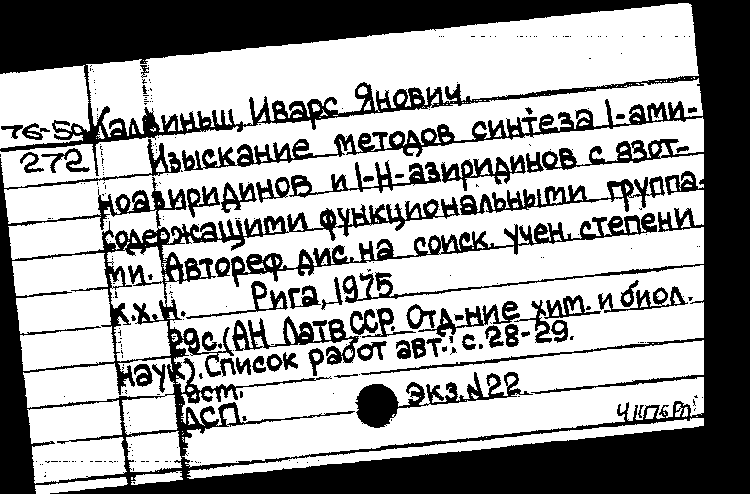 76-50
272
Калвиньш, Иварс Янович.
Изыскание методов синтеза 1-ами-
ноазиридинов и 1-Н-азиридинов с азот-
содержащими функциональными группа-
ми. Автореф. дис. на соиск. учен. степени
к.х.н. Рига, 1975.
29с. (АН ЛатвССР. Отд-ние хим. и биол.
наук). Список работ авт.: с.28-29.
ДСП. Экз.№22.